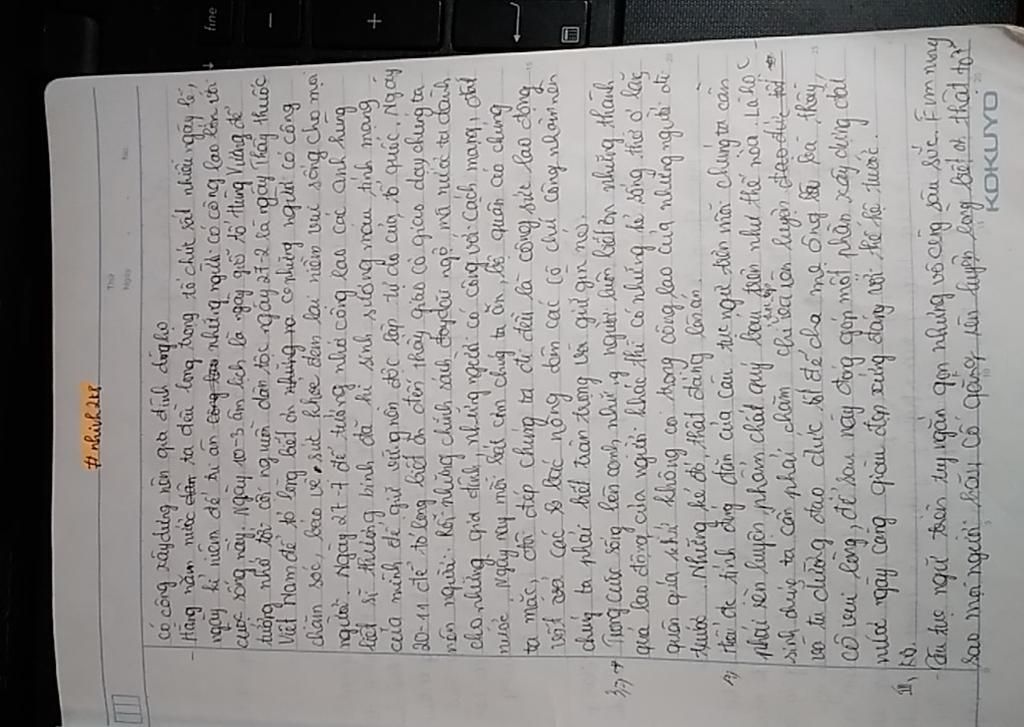 #nhinh2k8
Thứ
Ngày
No.
có công xây dựng nên gia đình dòng họ
- Hằng năm nước ta đều long trọng tổ chức rất nhiều ngày lễ,
ngày kỉ niệm để tri ân những người có công lao lớn với
cuộc sống nay. Ngày 10-3 âm lịch là ngày giỗ tổ Hùng Vương để
tưởng nhớ tới cội nguồn dân tộc, ngày 27-2 là ngày Thầy thuốc
Việt Nam để tỏ lòng biết ơn những người có công
chăm sóc, bảo vệ sức khỏe đem lại niềm vui sống cho mọi
người. Ngày 27-7 để tưởng nhớ công lao các anh hùng
liệt sĩ thương binh đã hi sinh xương máu tính mạng
của mình để giữ vững nền độc lập tự do của tổ quốc, Ngày
20-11 để tỏ lòng biết ơn đến thầy giáo cô giáo dạy chúng ta
nên người. Rồi những chính sách đãi ngộ mà nước ta dành
cho những gia đình, những người có công với Cách mạng, đất
nước. Ngày nay mỗi bát cơm chúng ta ăn, bộ quần áo chúng
ta mặc, đôi dép chúng ta đi đều là công sức lao động
vất vả các bác nông dân các cô chú công nhân nên
chúng ta phải biết trân trọng và giữ gìn nó.
Trong cuộc sống bên cạnh những người luôn biết ơn những thành
quả lao động của người khác thì có những kẻ sống thờ ơ lãng
quên quá khứ không coi trọng công lao của những người đi
trước. Những kẻ đó, thật đáng lên án.
Thấy được tính đúng đắn của câu tục ngữ trên mỗi chúng ta cần
phải rèn luyện phẩm chất quý báu trên như thế nào. Là học
sinh chúng ta cần phải chăm chỉ học tập rèn luyện
và tu dưỡng đạo đức tốt để cha mẹ ông bà thầy,
cô vui lòng, để sau này đóng góp một phần xây dựng đất
nước ngày càng giàu đẹp xứng đáng với thế hệ trước.
III, KB.
- Câu tục ngữ trên tuy ngắn gọn nhưng vô cùng sâu sắc. Em mong
sao mọi người hãy cố gắng rèn luyện lòng biết ơn thật tốt
KOKUYO